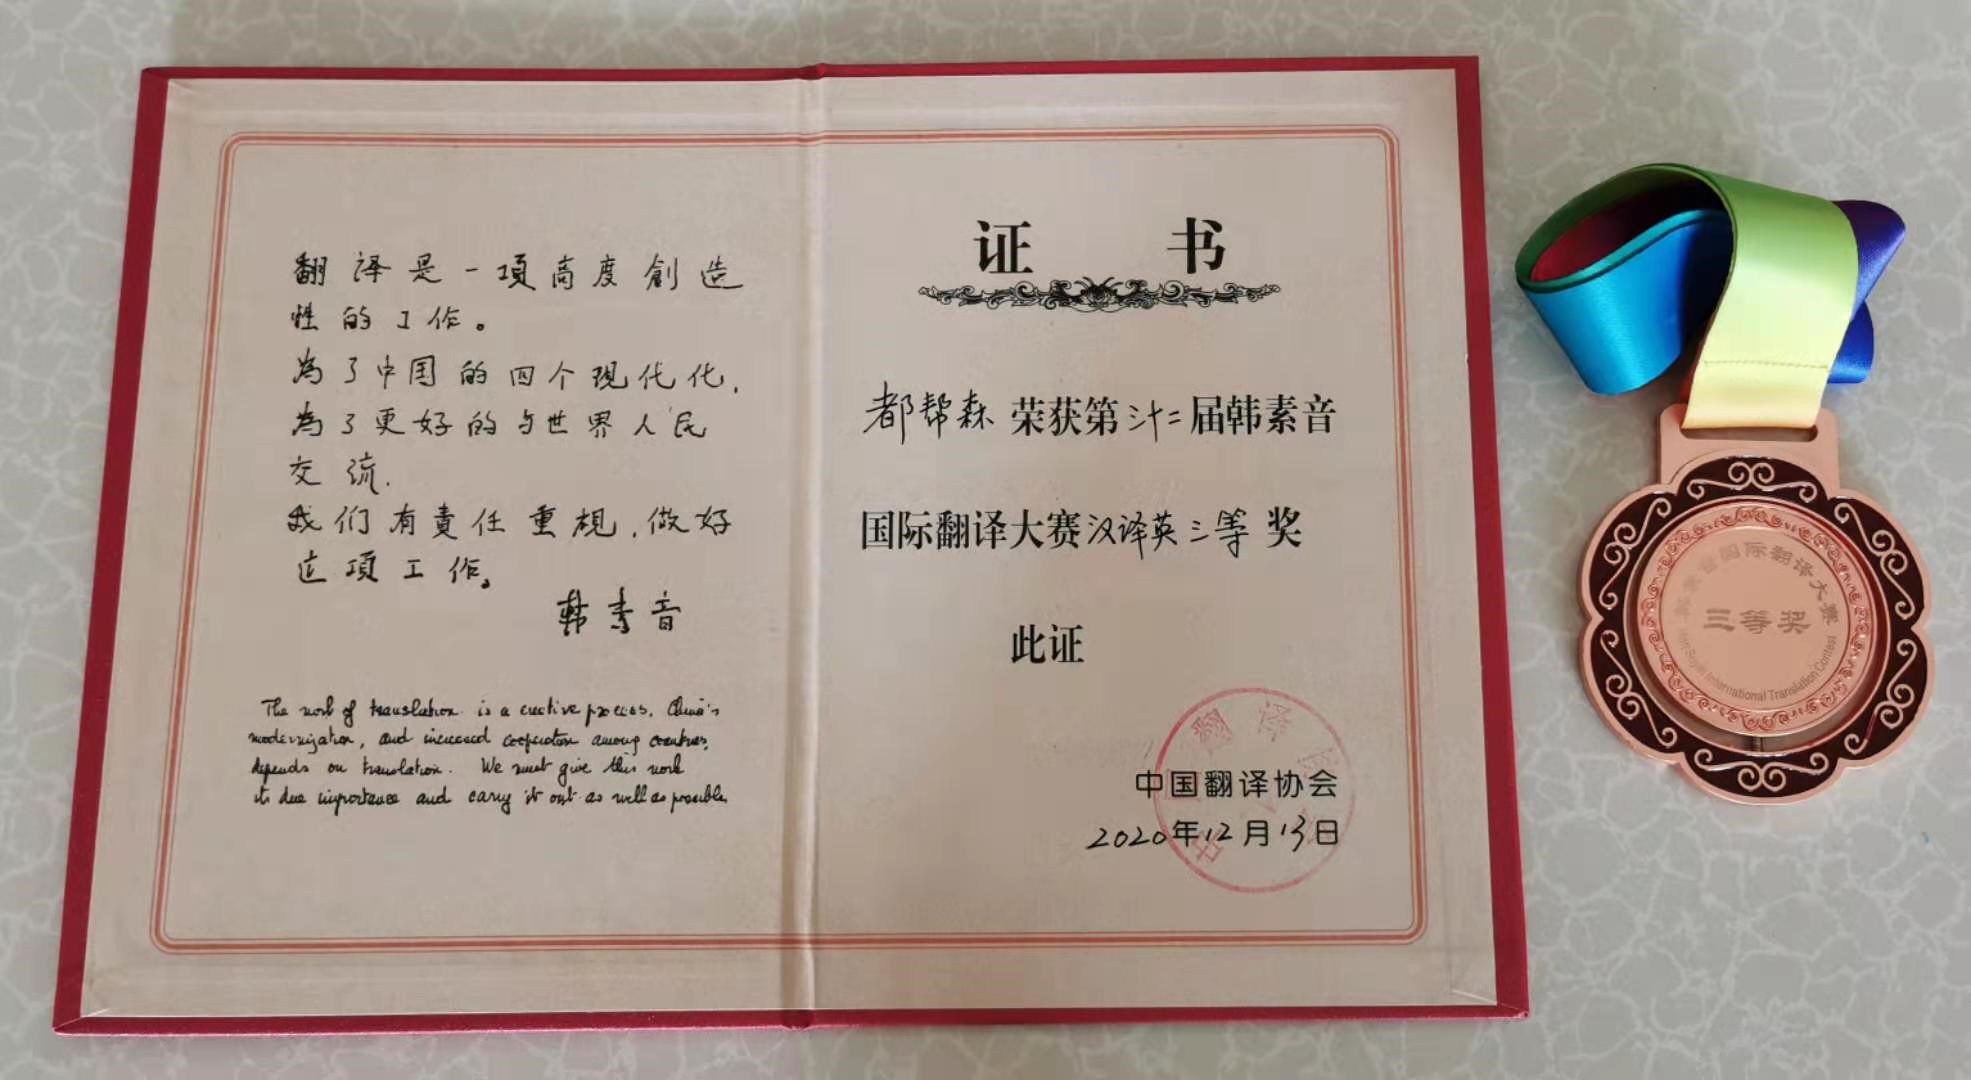 翻译是一項高度創造
性的工作。
為了中国的四个现代化,
為了更好的与世界人民
交流.
我们有責任重視,做好
这項工作。
韩素音
The work of translation is a creative process. China's
modernization, and increased cooperation among countries,
depends on translation. We must give this work
its due importance and carry it out as well as possible.
证 书
都帮森荣获第三十二届韩素音
国际翻译大赛汉译英三等奖
此证
中国翻译协会
2020年12月13日
韩素音国际翻译大赛
三等奖
Han Suyin International Translation Contest